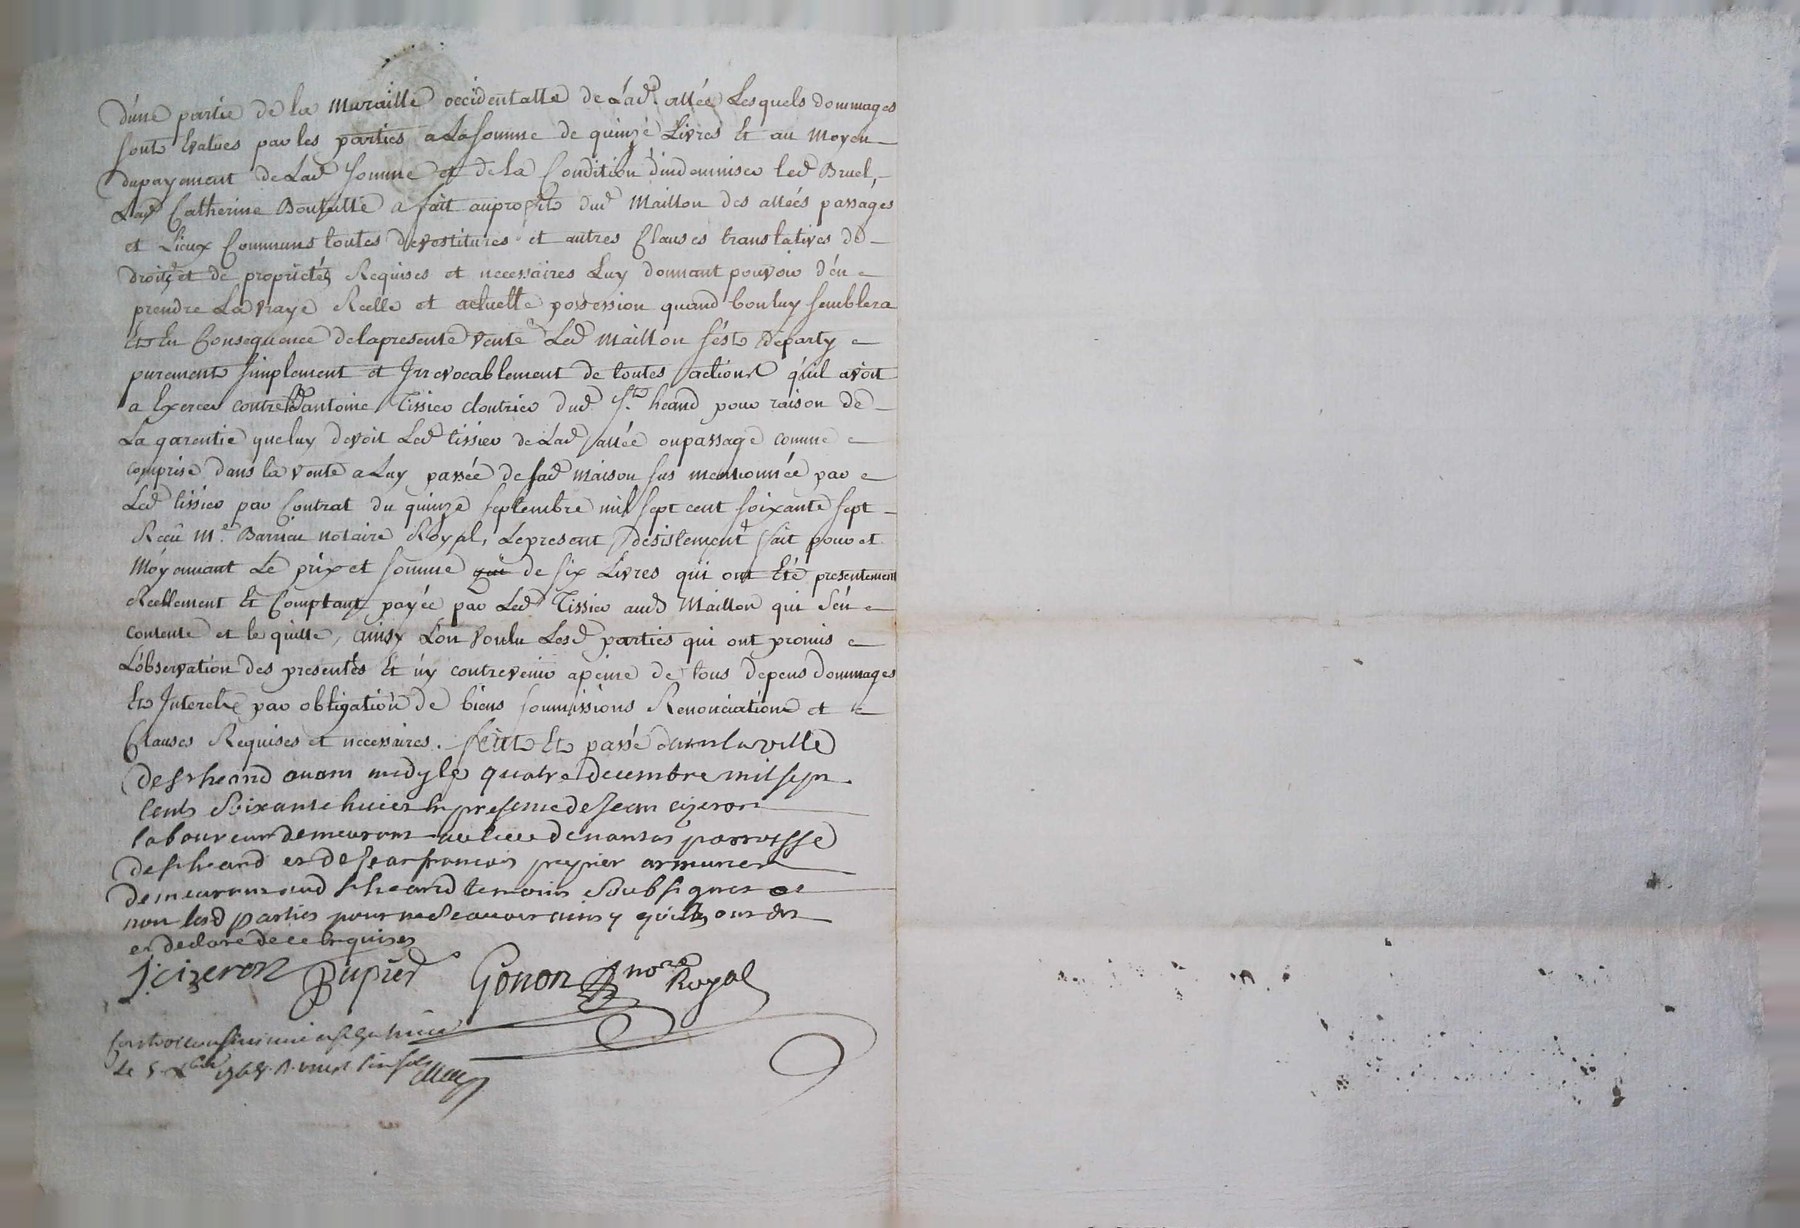 d'une partie de la muraille occidentalle de Lad. allée Lesquels dommages
sont Evalues par les parties a La somme de quinze Livres Et au moyen
du payement de Lad somme et de la Condition d'indemniser led Bruel,
Lad Catherine a fait au profit dud Maillon des allées passages
et Lieux Communs toutes devestitures et autres Clauses translatives de
droits et de proprietés Requises et necessaires Luy donnant pouvoir d'én
prendre La vraye Reelle et actuelle possession quand bon luy semblera
Et En Consequence de la presente vente Led Maillon s'ést départy
purement simplement et Irrevocablement de toutes actions qu'il avoit
a Exercer contre led antoine Tissier cloutrier dud St. heand pour raison de
La garentie que luy devoit Led tissier de Lad allée ou passage comme
comprise dans la vente a Luy passée de lad maison sus mentionnée par
Led tissier par Contrat du quinze septembre mil sept cent soixante sept
Reçu Me. notaire Royal, Le present desistement fait pour et
Moyennant Le prix et somme de six Livres qui ont Eté presentement
Reellement Et Comptant payée par Led Tissier aud Maillon qui s'én
contente et le quitte, ainsy L'on voulu Lesd parties qui ont promis
L'observation des presentés Et n'y contrevenir a peine de tous depens dommages
Et Interets par obligation de biens soumissions Renonciations et
Clauses Requises et necessaires. fait Et passé dans la ville
de st heand avant midy le quatre decembre mil sept
cents soixante huict En presence de Jean cizeron
laboureur demeurant au lieu de parroisse
de st heand et de Jean francois armurier
demeurant aud st heand temoins soubsignes et
non lesd parties pour ne scavoir ainsy qu'ils ont dit
et declaré de ce Enquises
J: cizeron Dupier Gonon nore Royal
le 5 Xbre 1768